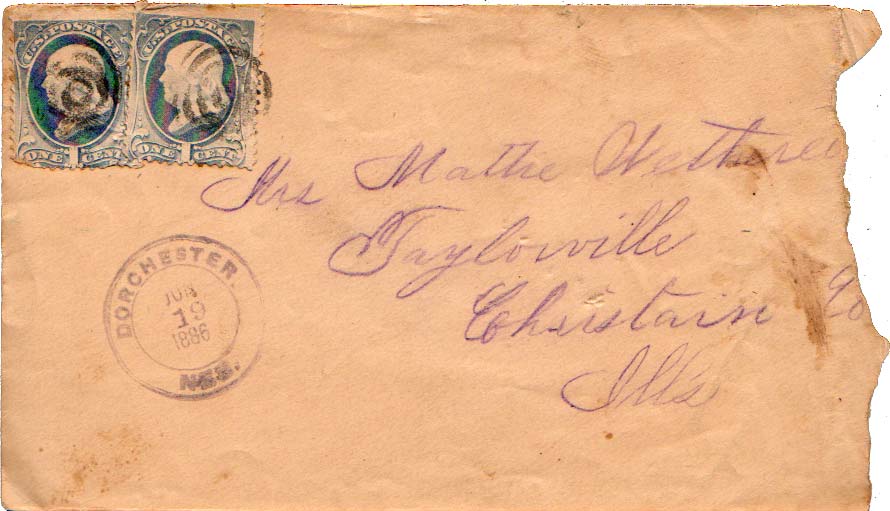 U.S. POSTAGE
ONE 1 CENT
U.S. POSTAGE
ONE 1 CENT
Mrs Mathe
Taylorville
Christain Co
Ills
DORCHESTER.
JUN
19
1886
NEB.